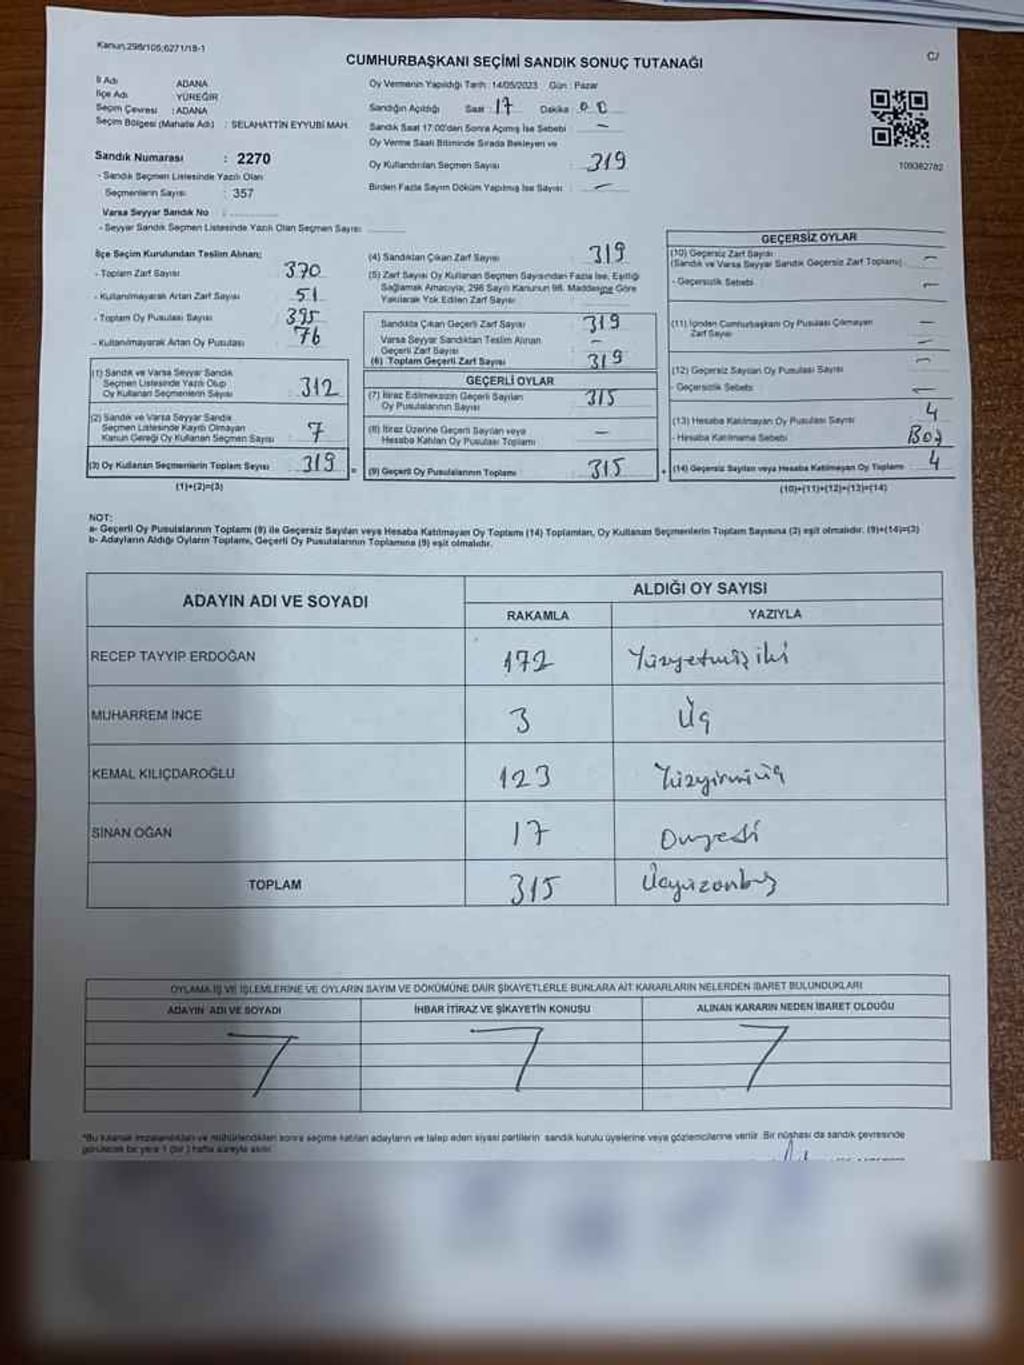 Kanun.298/105;6271/18-1
C/
CUMHURBAŞKANI SEÇİMİ SANDIK SONUÇ TUTANAĞI
İl Adı : ADANA
İlçe Adı : YÜREĞİR
Seçim Çevresi : ADANA
Seçim Bölgesi (Mahalle Adı) : SELAHATTİN EYYUBİ MAH.
Sandık Numarası : 2270
- Sandık Seçmen Listesinde Yazılı Olan
Seçmenlerin Sayısı : 357
Varsa Seyyar Sandık No :
- Seyyar Sandık Seçmen Listesinde Yazılı Olan Seçmen Sayısı:
Oy Vermenin Yapıldığı Tarih :14/05/2023 Gün : Pazar
Sandığın Açıldığı Saat : 17 Dakika : 00
Sandık Saat 17:00'dan Sonra Açılmış İse Sebebi : —
Oy Verme Saati Bitiminde Sırada Bekleyen ve
Oy Kullandırılan Seçmen Sayısı : 319
Birden Fazla Sayım Döküm Yapılmış İse Sayısı : —
109382782
İlçe Seçim Kurulundan Teslim Alınan;
- Toplam Zarf Sayısı 370
- Kullanılmayarak Artan Zarf Sayısı 51
- Toplam Oy Pusulası Sayısı 395
- Kullanılmayarak Artan Oy Pusulası 76
(1) Sandık ve Varsa Seyyar Sandık
Seçmen Listesinde Yazılı Olup
Oy Kullanan Seçmenlerin Sayısı 312
(2) Sandık ve Varsa Seyyar Sandık
Seçmen Listesinde Kayıtlı Olmayan
Kanun Gereği Oy Kullanan Seçmen Sayısı 7
(3) Oy Kullanan Seçmenlerin Toplam Sayısı 319
(1)+(2)=(3)
(4) Sandıktan Çıkan Zarf Sayısı 319
(5) Zarf Sayısı Oy Kullanan Seçmen Sayısından Fazla İse, Eşitliği
Sağlamak Amacıyla; 298 Sayılı Kanunun 98. Maddesine Göre
Yakılarak Yok Edilen Zarf Sayısı
Sandıkta Çıkan Geçerli Zarf Sayısı 319
Varsa Seyyar Sandıktan Teslim Alınan
Geçerli Zarf Sayısı —
(6) Toplam Geçerli Zarf Sayısı 319
GEÇERLİ OYLAR
(7) İtiraz Edilmeksizin Geçerli Sayılan
Oy Pusulalarının Sayısı 315
(8) İtiraz Üzerine Geçerli Sayılan veya
Hesaba Katılan Oy Pusulası Toplamı —
= (9) Geçerli Oy Pusulalarının Toplamı 315
GEÇERSİZ OYLAR
(10) Geçersiz Zarf Sayısı
(Sandık ve Varsa Seyyar Sandık Geçersiz Zarf Toplamı) —
- Geçersizlik Sebebi —
(11) İçinden Cumhurbaşkanı Oy Pusulası Çıkmayan
Zarf Sayısı —
(12) Geçersiz Sayılan Oy Pusulası Sayısı —
- Geçersizlik Sebebi —
(13) Hesaba Katılmayan Oy Pusulası Sayısı 4
- Hesaba Katılmama Sebebi Boş
+ (14) Geçersiz Sayılan veya Hesaba Katılmayan Oy Toplamı 4
(10)+(11)+(12)+(13)=(14)
NOT:
a- Geçerli Oy Pusulalarının Toplamı (9) ile Geçersiz Sayılan veya Hesaba Katılmayan Oy Toplamı (14) Toplamları, Oy Kullanan Seçmenlerin Toplam Sayısına (3) eşit olmalıdır. (9)+(14)=(3)
b- Adayların Aldığı Oyların Toplamı, Geçerli Oy Pusulalarının Toplamına (9) eşit olmalıdır.
ADAYIN ADI VE SOYADI
ALDIĞI OY SAYISI
RAKAMLA YAZIYLA
RECEP TAYYİP ERDOĞAN 172 Yüzyetmişiki
MUHARREM İNCE 3 Üç
KEMAL KILIÇDAROĞLU 123 Yüzyirmiüç
SİNAN OĞAN 17 Onyedi
TOPLAM 315 Üçyüzonbeş
OYLAMA İŞ VE İŞLEMLERİNE VE OYLARIN SAYIM VE DÖKÜMÜNE DAİR ŞİKAYETLERLE BUNLARA AİT KARARLARIN NELERDEN İBARET BULUNDUKLARI
ADAYIN ADI VE SOYADI İHBAR İTİRAZ VE ŞİKAYETİN KONUSU ALINAN KARARIN NEDEN İBARET OLDUĞU
*Bu tutanak imzalandıktan ve mühürlendikten sonra seçime katılan adayların ve talep eden siyasi partilerin sandık kurulu üyelerine veya gözlemcilerine verilir. Bir nüshası da sandık çevresinde
görülecek bir yere 1 (bir) hafta süreyle asılır.